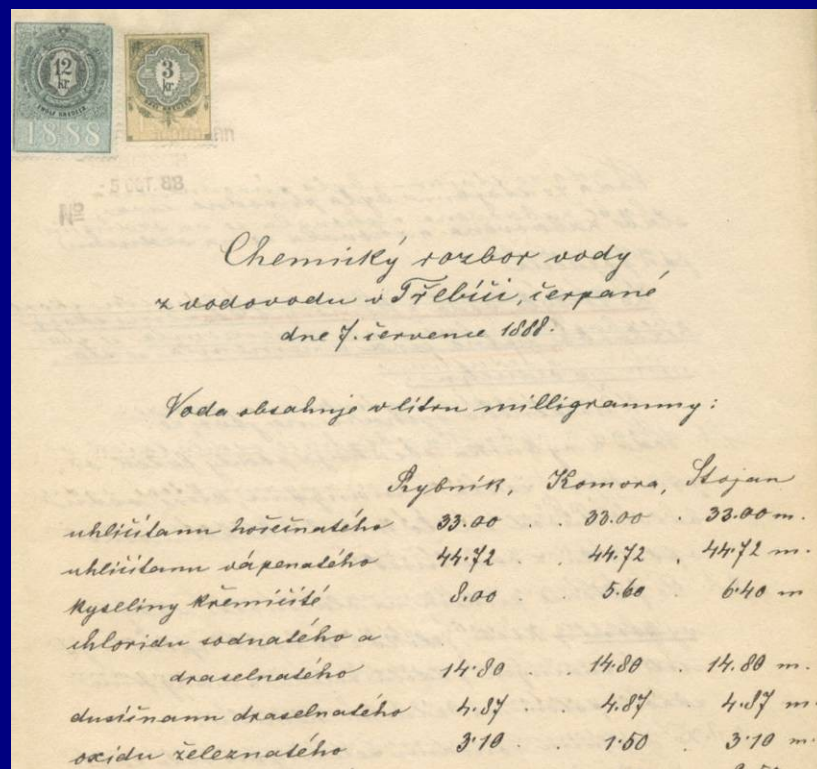 12 kr.
3 kr.
1888
Chemický rozbor vody
z vodovodu v Třebíči, čerpané
dne 7. července 1888.
Voda obsahuje v litru milligrammy:
Rybník, Komora, Stojan
uhličitanu hořečnatého 33.00 . 33.00 . 33.00 m.
uhličitanu vápenatého 44.72 . 44.72 . 44.72 m.
kyseliny křemičité 8.00 . 5.60 6.40 m
chloridu sodnatého a
draselnatého 14.80 . . 14.80 . 14.80 m.
dusičnanu draselnatého 4.87 . . 4.87 4.87 m.
oxidu železnatého 3.10 . 1.50 . 3.10 m.